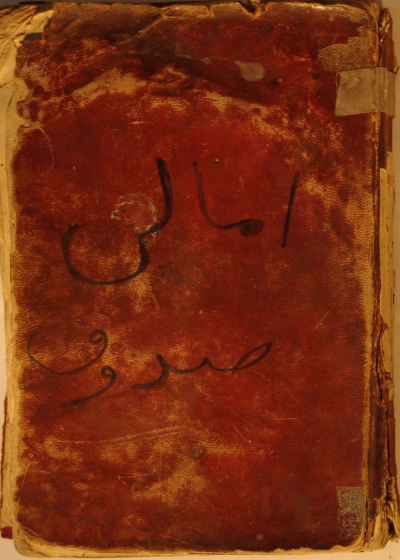 امالی
صدوق